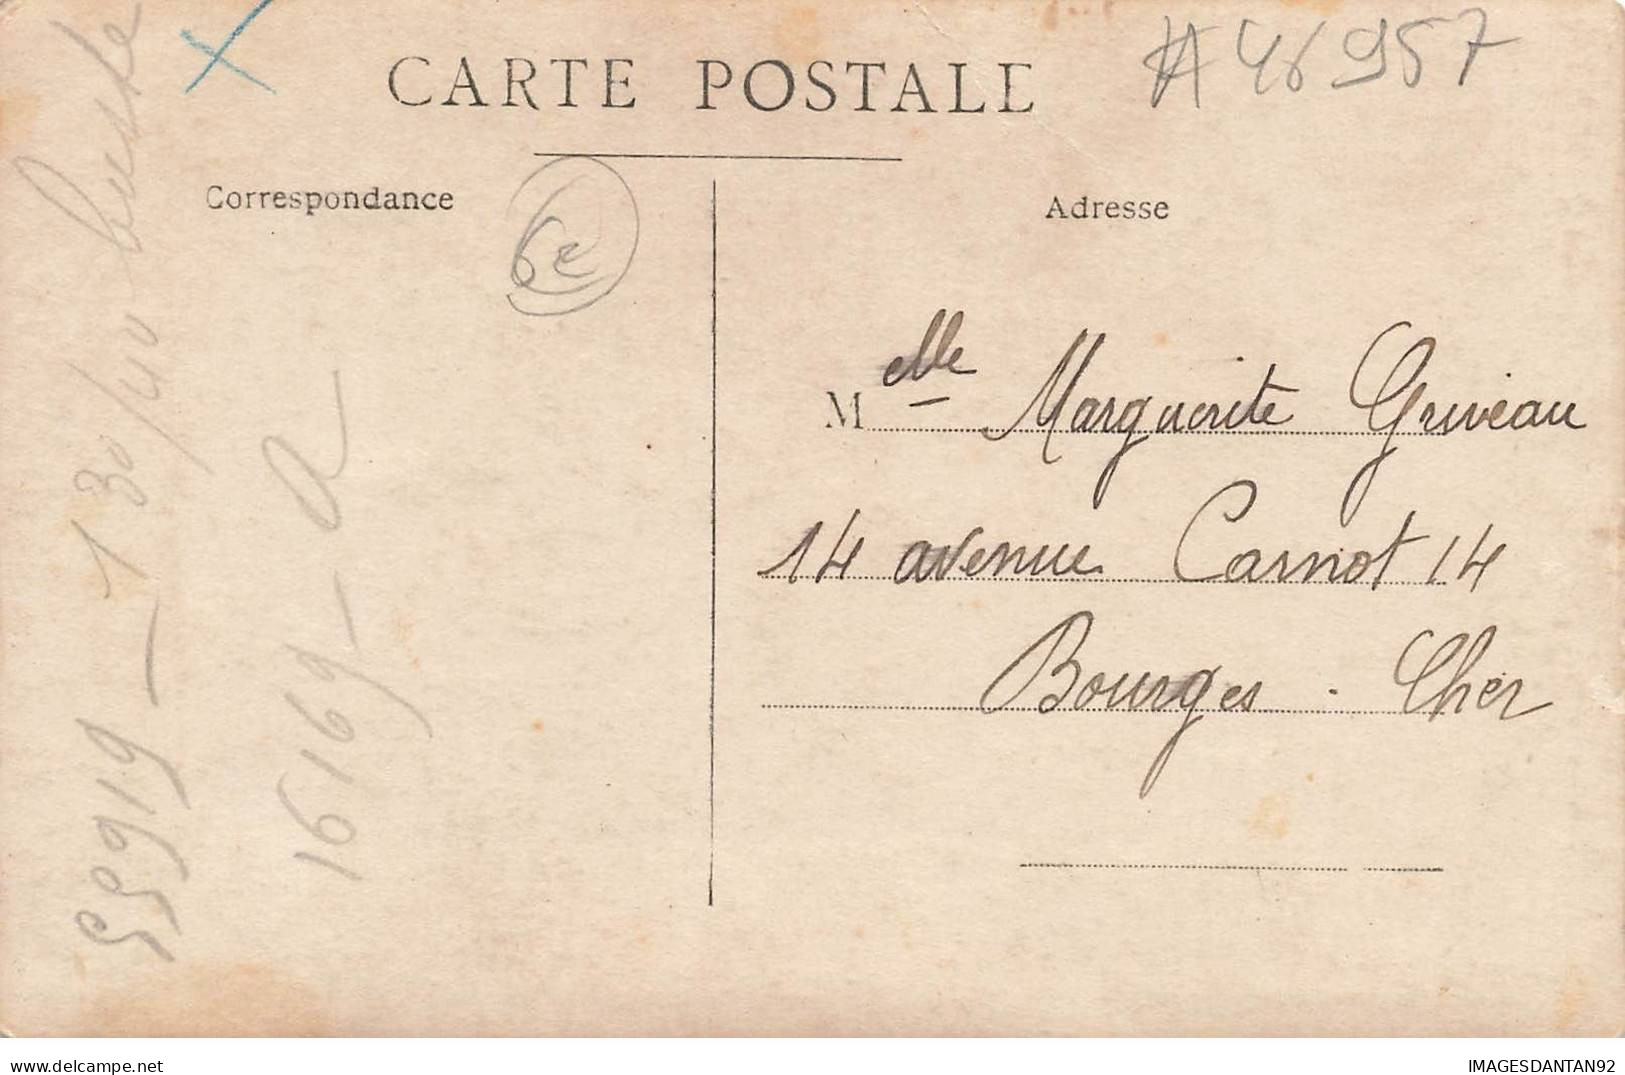 CARTE POSTALE
#46957
Correspondance
6e
Adresse
Melle Marguerite Griveau
14 avenue Carnot 14
Bourges . Cher
1619 - a
IMAGESDANTAN92